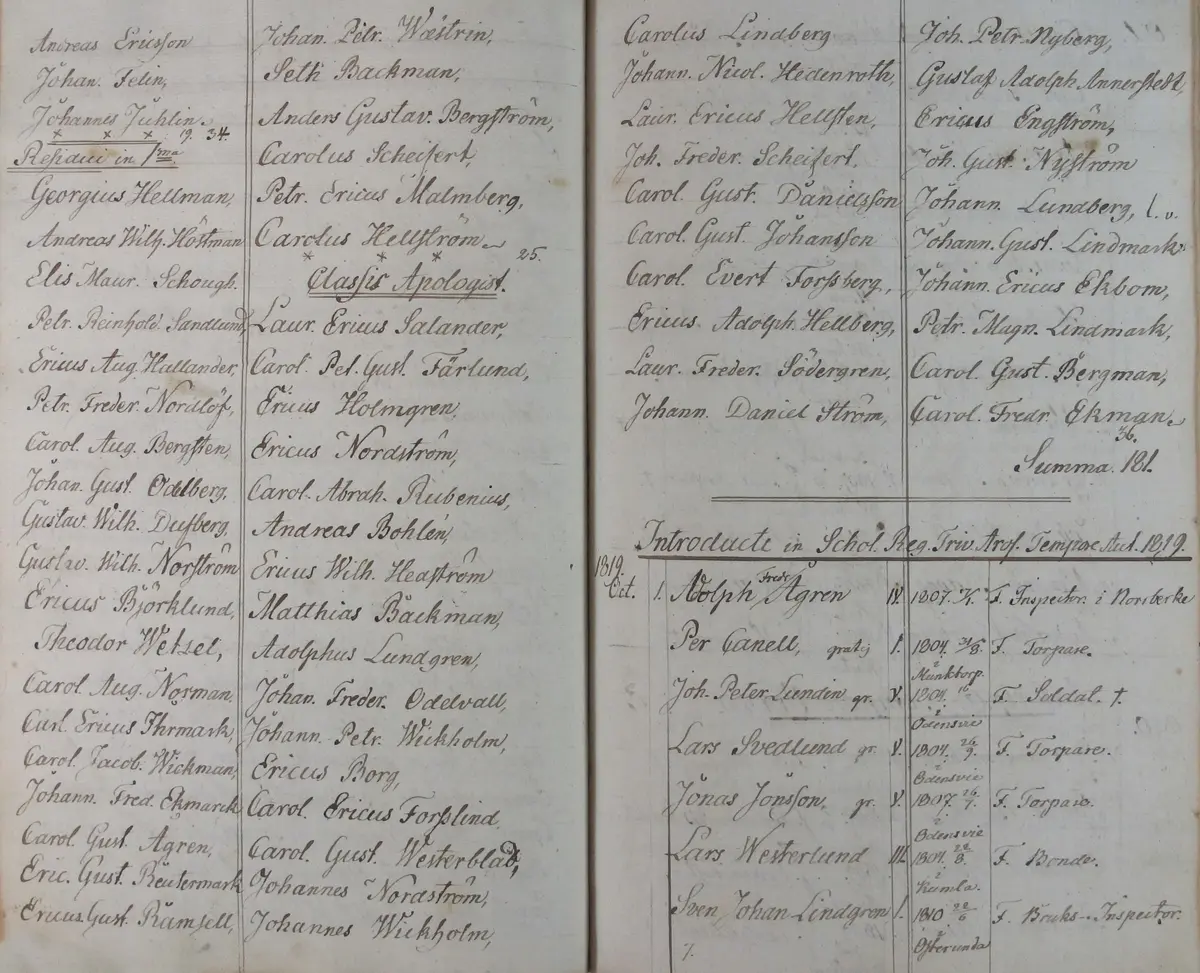 Andreas Ericsson
Johan. Felin,
Johannes Juhlin.
19. 34.
Residui in 1ma
Georgius Hellman,
Andreas Wilh. Höstman
Elis Maur. Schough.
Petr. Reinhold Sandlund,
Ericus Aug. Hallander,
Petr. Freder. Nordlöf,
Carol. Aug. Bergsten,
Johan. Gust. Odelberg,
Gustav. Wilh. Dusberg,
Gustav. Wilh. Norström
Ericus Björklund,
Theodor Wetsel,
Carol. Aug. Norman,
Carl. Ericus Ihrmark,
Carol. Jacob. Wickman,
Johann. Fred. Ekmarck
Carol. Gust. Ågren,
Eric. Gust. Reutermark
Ericus. Gust. Ramsell,
Johan. Petr. Wæstrin,
Seth Backman,
Anders Gustav. Bergström,
Carolus Scheifert,
Petr. Ericus Malmberg,
Carolus Hellström
25.
Classis Apologist.
Laur. Ericus Salander,
Carol. Pet. Gust. Färlund,
Ericus Holmgren,
Ericus Nordström,
Carol. Abrah. Rubenius,
Andreas Bohlén,
Ericus Wilh. Hedström
Matthias Bäckman,
Adolphus Lundgren,
Johan. Freder. Odelvall,
Johann. Petr. Wickholm,
Ericus Borg,
Carol. Ericus Forsslind.
Carol. Gust. Westerblad,
Johannes Nordström,
Johannes Wickholm,
Carolus Lindberg
Johann. Nicol. Hedenroth,
Laur. Ericus Hellsten,
Joh. Freder. Scheifert.
Carol. Gust. Danielsson
Carol. Gust. Johansson
Carol. Evert Forssberg,
Ericus. Adolph. Hellberg,
Laur. Freder. Södergren,
Johann. Daniel Ström,
Joh. Petr. Nyberg,
Gustaf Adolph Annerstedt,
Ericus Engström,
Joh. Gust. Nyström
Johann. Lundberg, l. v.
Johann. Gust. Lindmark
Johann. Ericus Ekbom,
Petr. Magn. Lindmark,
Carol. Gust. Bergman,
Carol. Fredr. Ekman.
36.
Summa. 181.
Introducte in Schol. Reg. Triv. Aros. Tempore Aut. 1819.
1819.
Oct. 1. Adolph Fredr Ågren IV. 1807. F. Inspector i Norrberke
Per Canell, gratis I. 1804. F. Torpare.
Munktorp.
Joh. Peter Lundin gr. V. 1804. F. Soldat. †.
Odensvie
Lars Svedlund gr. V. 1804. 26/9. F. Torpare.
Odensvie
Jonas Jonsson, gr. V. 1807. 26/7. F. Torpare.
Odensvie
Lars Westerlund III. 1804. 28/8. F. Bonde.
Kumla.
Sven Johan Lindgren I. 1810 22/6 F. Bruks-Inspector.
7. Österunda